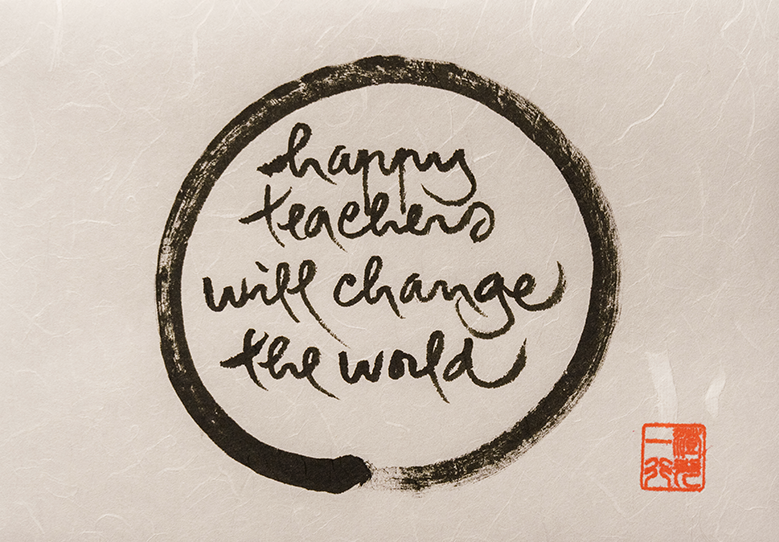 happy
teachers
will change
the world
一行